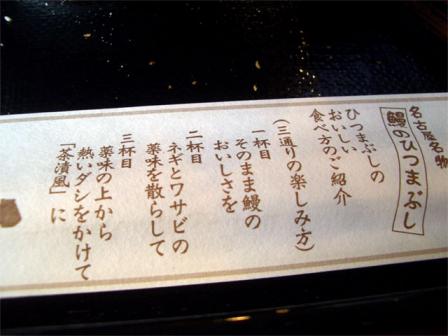 名古屋名物
鰻のひつまぶし
ひつまぶしの
おいしい
食べ方のご紹介
（三通りの楽しみ方）
一杯目
そのまま鰻の
おいしさを
二杯目
ネギとワサビの
薬味を散らして
三杯目
薬味の上から
熱いダシをかけて
「茶漬風」に